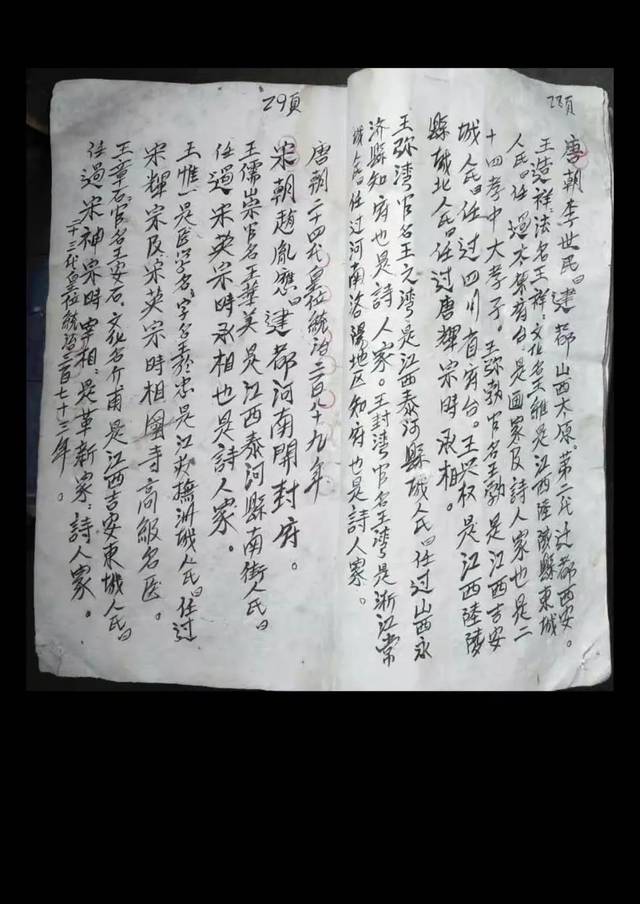 28頁
唐朝李世民曰建都山西太原。第二代迁都西安。
王造祥:法名王祥:文化名王維是江西陸陵縣東城
人民曰任過太葉府台是画家及詩人家也是二
十四孝中大孝子。王弥勃官名王勃是江西吉安
城人民曰任过四川省府台。王兴权是江西陸陵
縣城北人民曰任过唐輝宗時承相。
王弥湾官名王之湾是江西泰河縣城人民曰任过山西永
济縣知府也是詩人家。王封湾官名王湾是浙江常
城人民曰任过河南洛陽地区知府也是詩人家。
29頁
唐朝二十四代皇位統治二百八十九年
宋朝趙胤應曰建都河南開封府。
王儒崇官名王華美是江西泰河縣南街人民曰
任過宋英宗時承相也是詩人家。
王惟一是医学名,字名王於忠是江西撫洲城人民曰任过
宋輝宗及宋英宗時相國寺高級名医。
王章石官名王安石,文化名介甫是江西吉安東城人民曰
任過宋神宗時宰相:是革新家:詩人家。
十三代皇位統治三百七十三年。